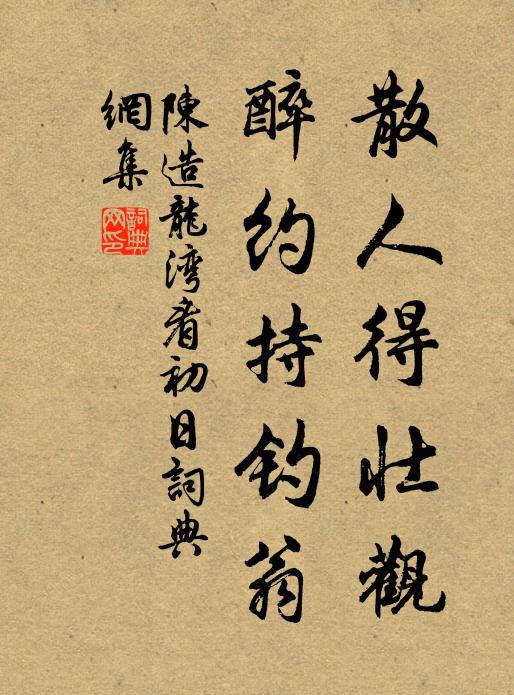 散人得壮觀
醉约持钓翁
陳造龍湾看初日詞典
網集
詞典
网印